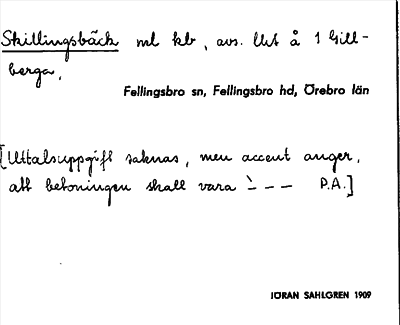 Skillingsbäck ml kb, avs. litet å 1 Gill-
berga,
Fellingsbro sn, Fellingsbro hd, Örebro län
[Uttalsuppgift saknas, men accent anger,
att betoningen skall vara ˋ – – – P.A.]
JÖRAN SAHLGREN 1909